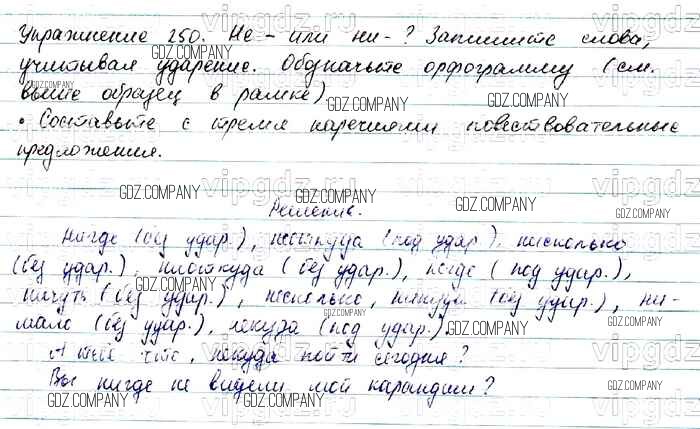 Упражнение 250. Не- или ни-? Запишите слова,
учитывая ударение. Обозначьте орфограмму (см.
выше образец в рамке).
• Составьте с тремя наречиями повествовательные
предложения.
Решение.
Нигде (без удар.), неоткуда (под удар.), нисколько
(без удар.), ниоткуда (без удар.), негде (под удар.),
ничуть (без удар.), несколько, никуда (без удар.), ни-
мало (без удар.), некуда (под удар.)
А тебе что, некуда пойти сегодня?
Вы нигде не видели мой карандаш?
GDZ.COMPANY
vipgdz.ru